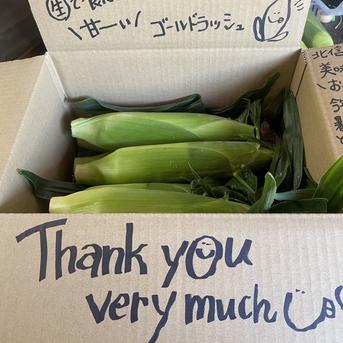 生で食
甘ーい
ゴールドラッシュ
北信
美味
お
今
暑
と
Thank you
very much